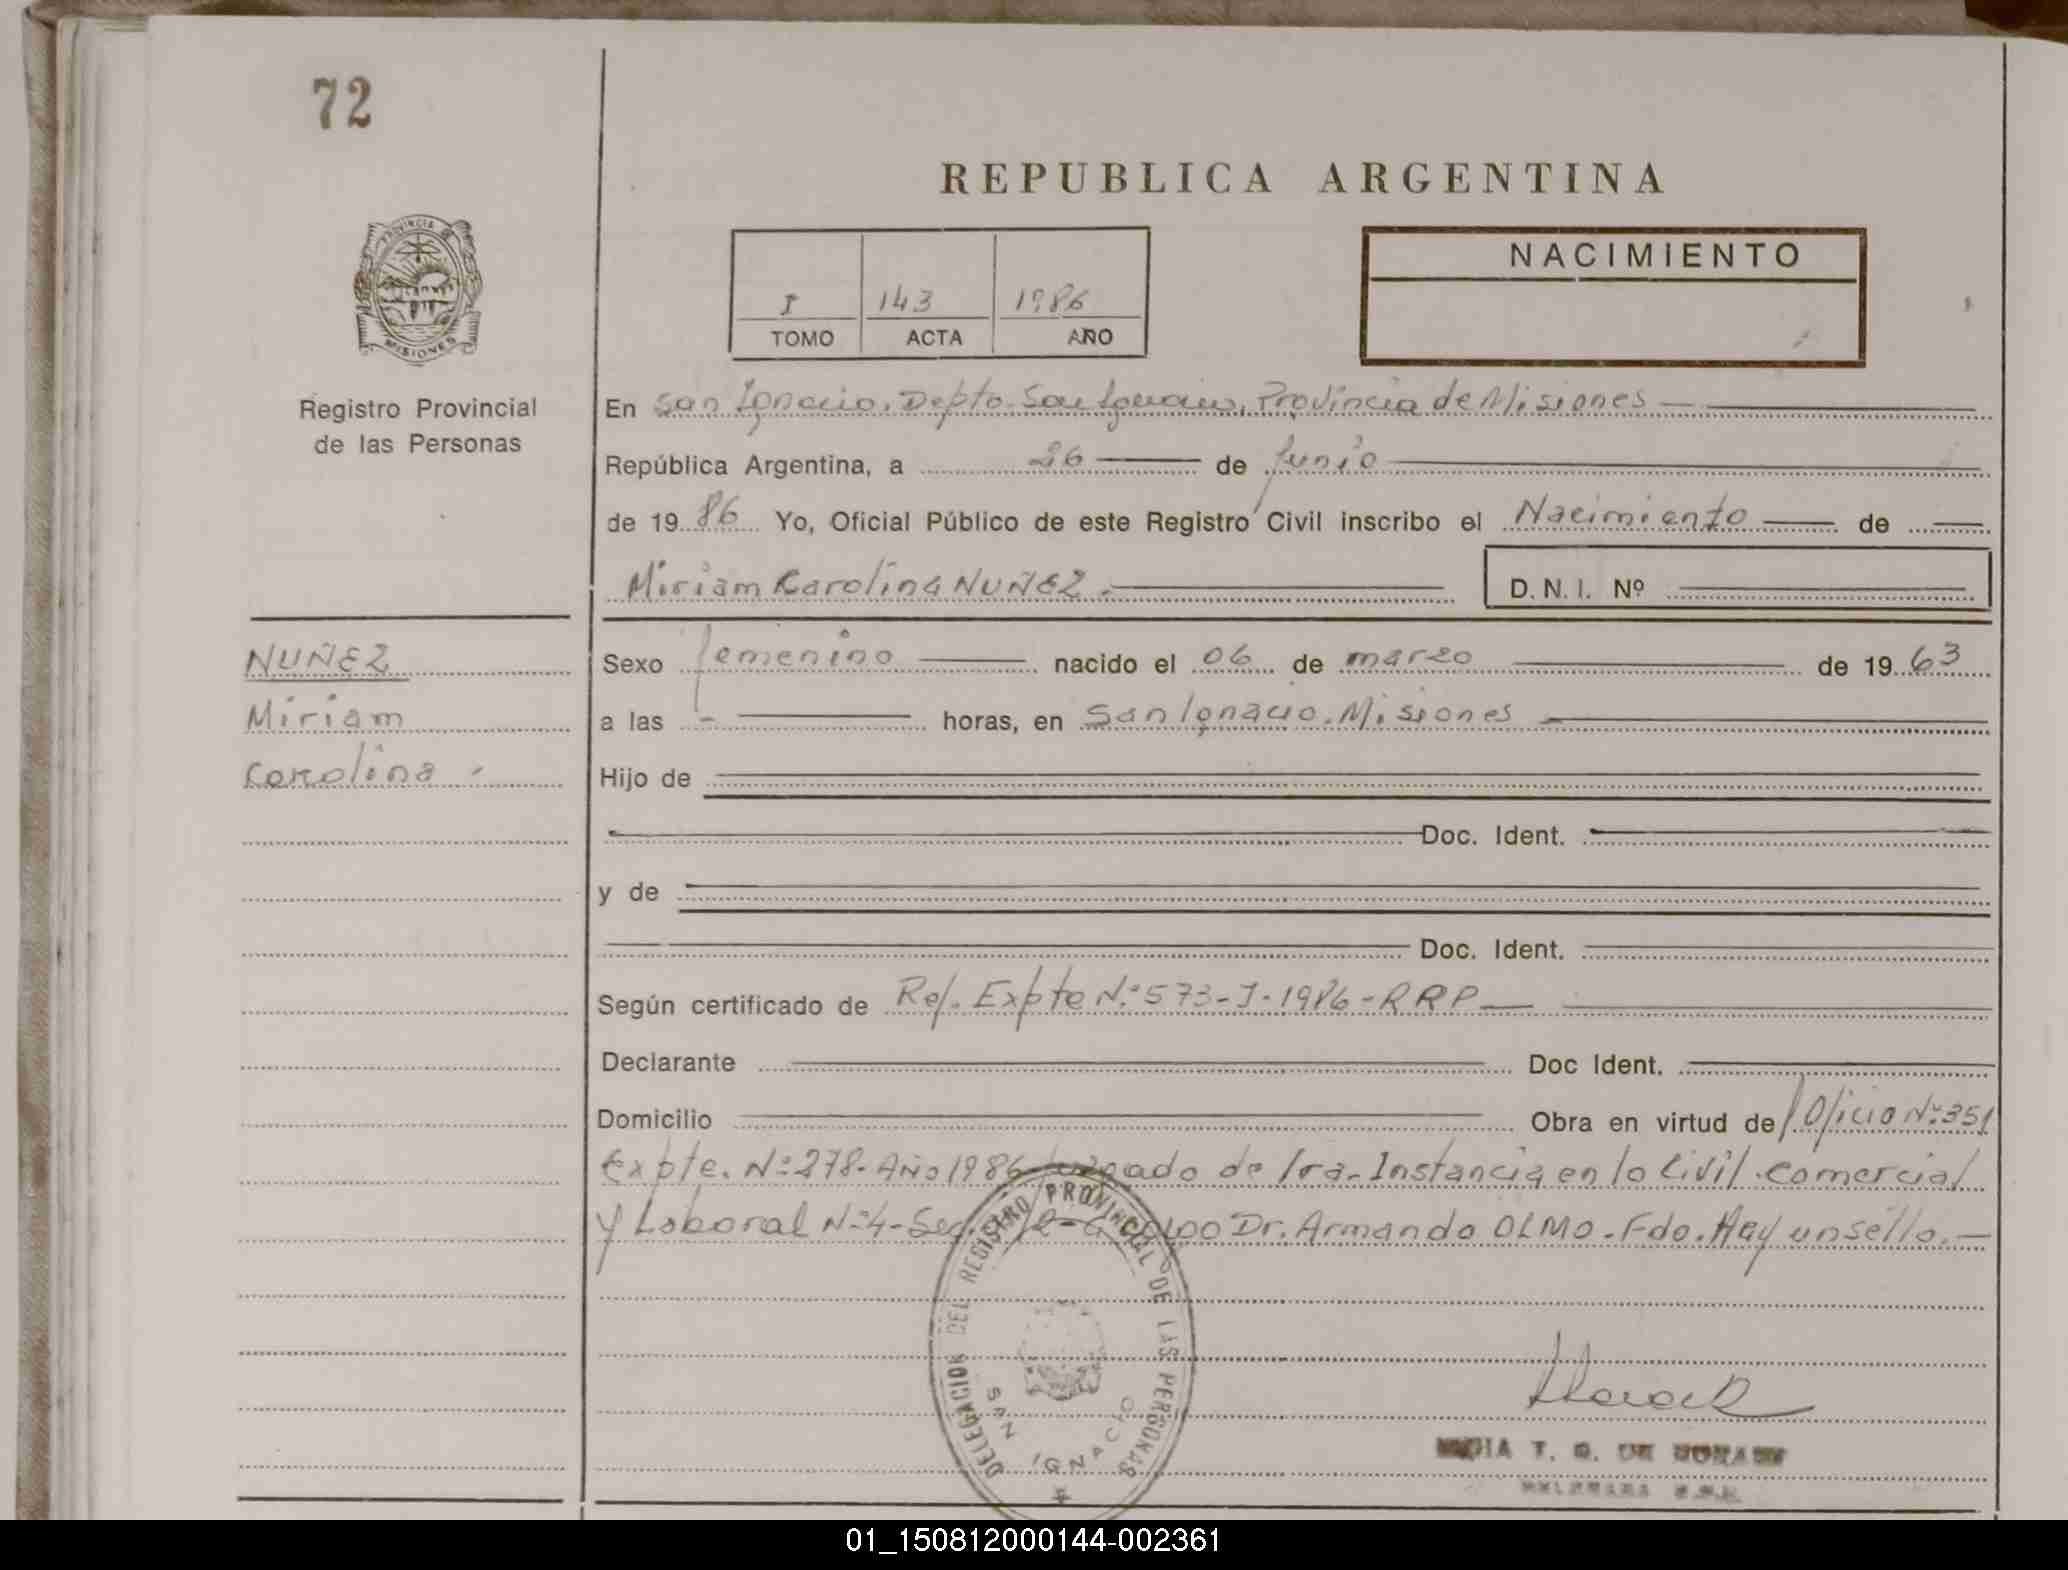 72
REPUBLICA ARGENTINA
PROVINCIA DE
MISIONES
NACIMIENTO
I 143 1986
TOMO ACTA AÑO
Registro Provincial
de las Personas
En San Ignacio. Depto. San Ignacio. Provincia de Misiones
República Argentina, a 26 de Junio
de 1986 Yo, Oficial Público de este Registro Civil inscribo el Nacimiento de
Miriam Carolina NUÑEZ.
D.N.I. Nº
NUÑEZ
Miriam
Carolina
Sexo femenino nacido el 06 de marzo de 1963
a las - horas, en San Ignacio. Misiones
Hijo de
Doc. Ident.
y de
Doc. Ident.
Según certificado de Ref. Expte Nº 573-J-1986-RRP
Declarante Doc Ident.
Domicilio Obra en virtud de Oficio Nº 351
Expte. Nº 278-Año 1986-Juzgado de 1ra. Instancia en lo Civil. Comercial
y Laboral Nº 4- Dr. Armando OLMO. Fdo. Hay un sello.-
DELEGACION DEL REGISTRO PROVINCIAL DE LAS PERSONAS
SAN IGNACIO
T. G. DE
01_150812000144-002361